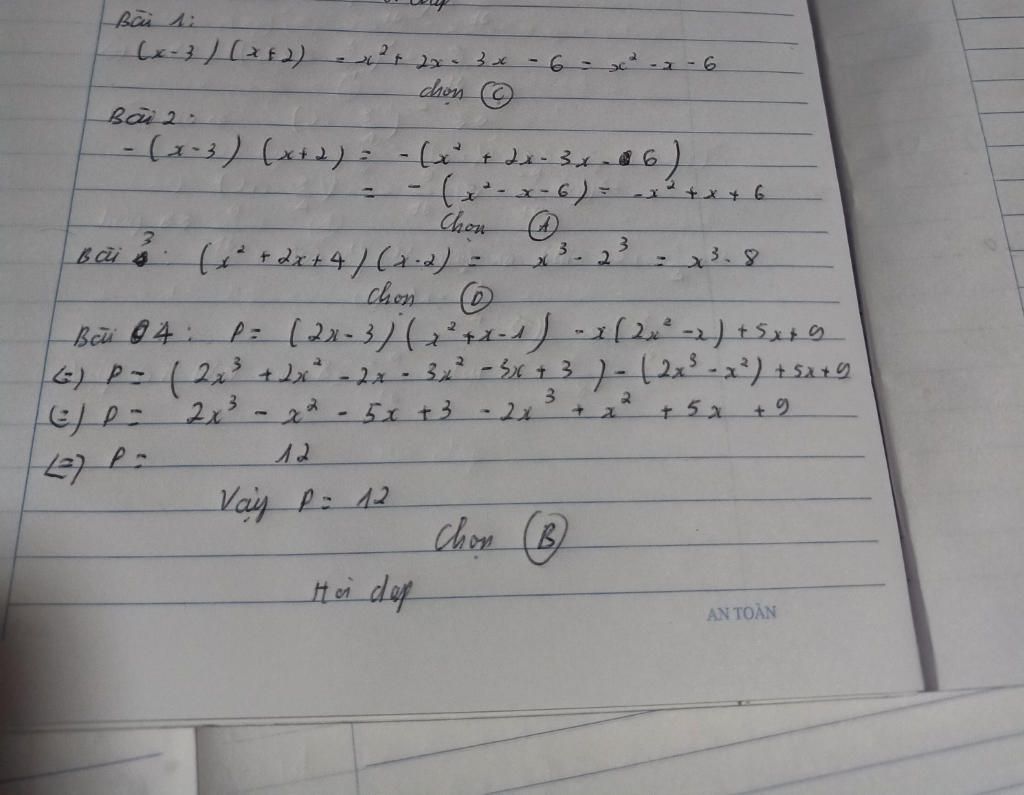 Bài 1:
(x-3)(x+2) = x² + 2x - 3x - 6 = x² - x - 6
chọn C
Bài 2:
-(x-3)(x+2) = -(x² + 2x - 3x - 6)
= -(x² - x - 6) = -x² + x + 6
Chọn A
Bài 3: (x² + 2x + 4)(x-2) = x³ - 2³ = x³ - 8
Chọn D
Bài 4: P = (2x-3)(x²+x-1) - x(2x²-x) + 5x + 9
(=) P = (2x³ + 2x² - 2x - 3x² - 3x + 3) - (2x³ - x²) + 5x + 9
(=) P = 2x³ - x² - 5x + 3 - 2x³ + x² + 5x + 9
(=) P = 12
Vậy P = 12
Chọn B
Hỏi đáp
AN TOÀN